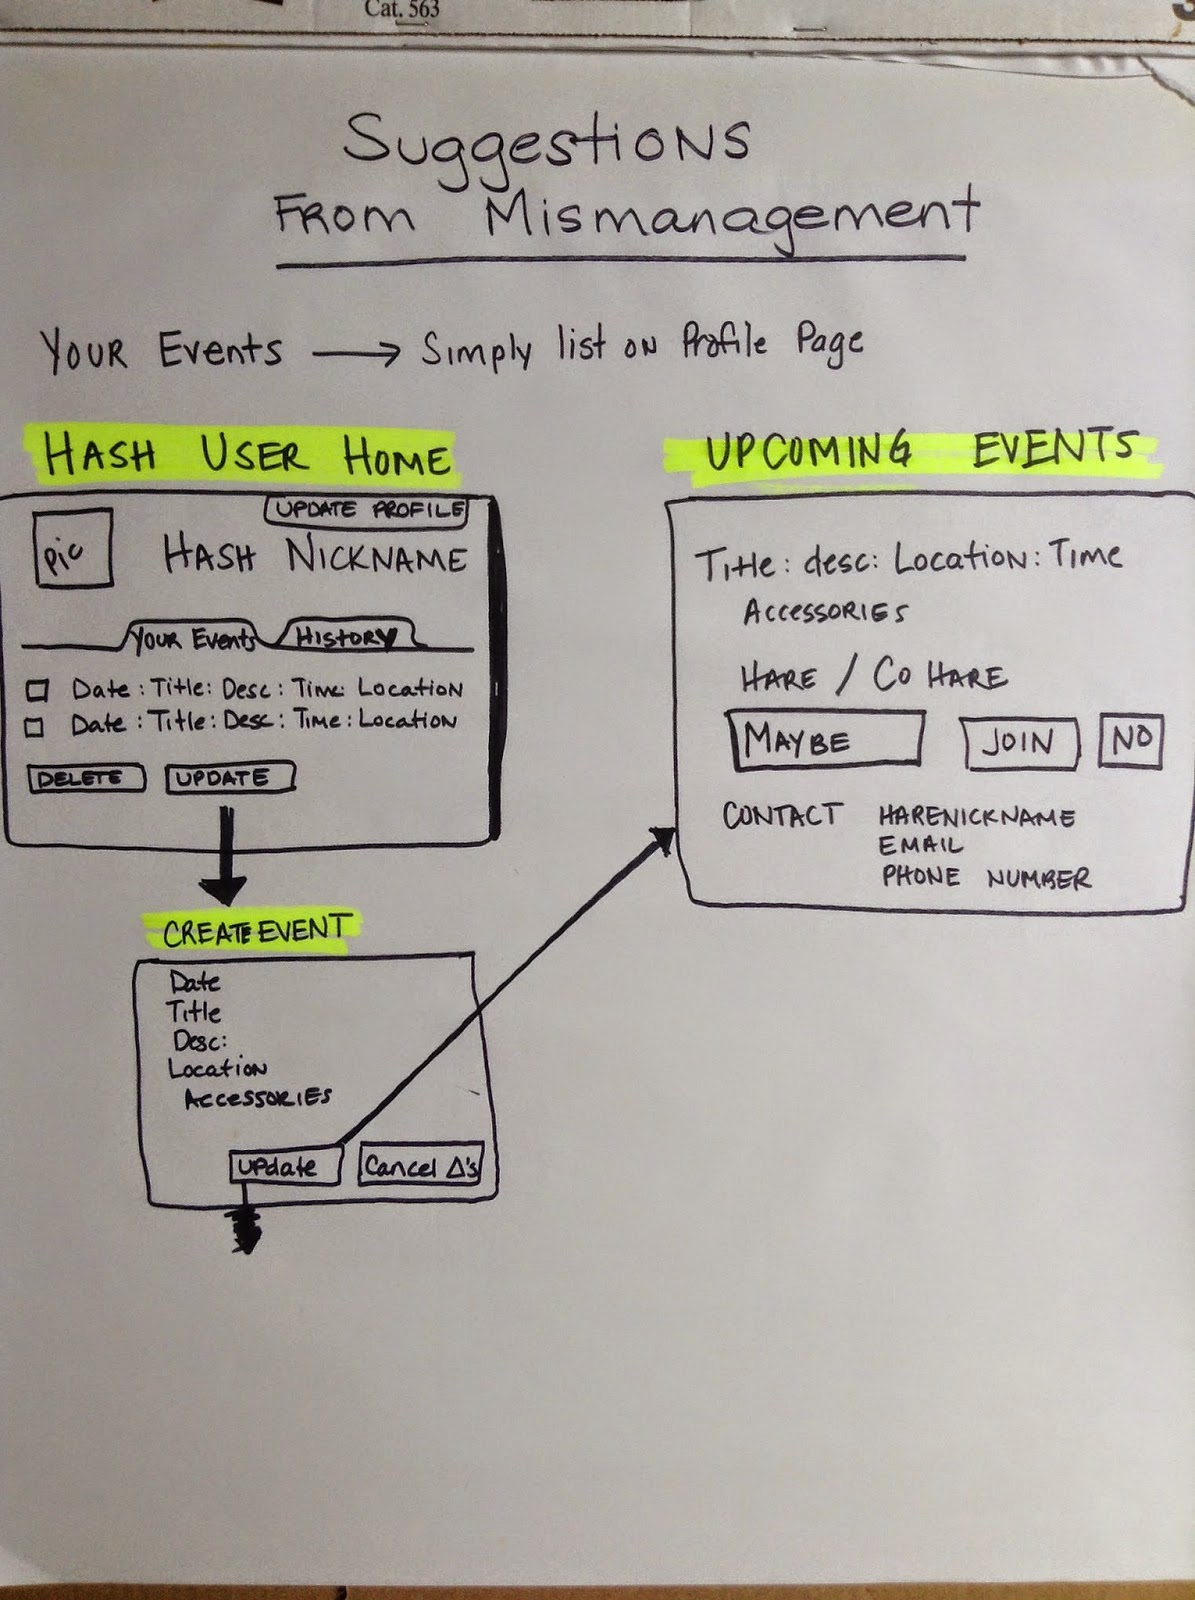 Cat. 563
Suggestions
From Mismanagement
Your Events → Simply list on Profile Page
HASH USER HOME
UPDATE PROFILE
pic
HASH NICKNAME
Your Events
HISTORY
Date : Title : Desc : Time : Location
Date : Title : Desc : Time : Location
DELETE
UPDATE
CREATE EVENT
Date
Title
Desc:
Location
ACCESSORIES
Update
Cancel Δ's
UPCOMING EVENTS
Title : desc : Location : Time
ACCESSORIES
HARE / CO HARE
MAYBE
JOIN
NO
CONTACT HARENICKNAME
EMAIL
PHONE NUMBER